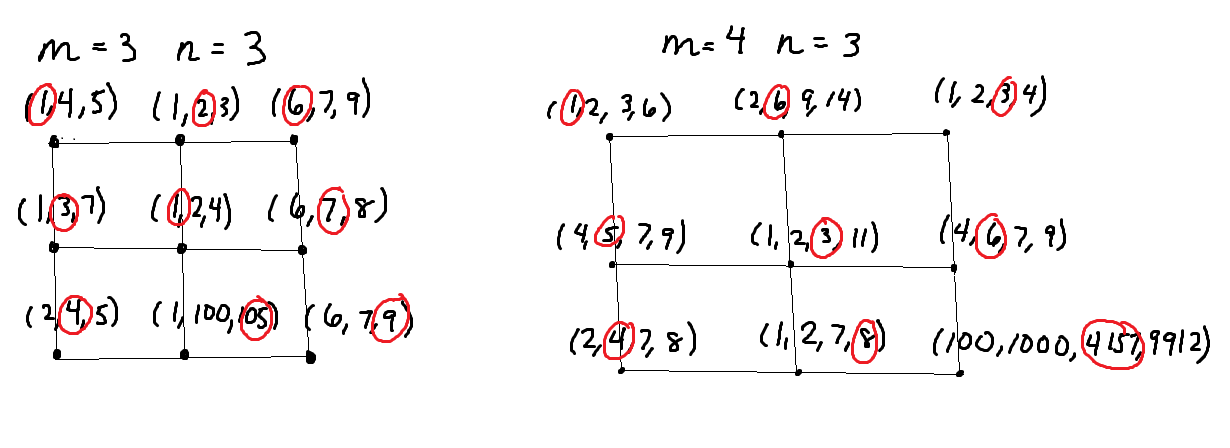 m = 3 n = 3
(1,4,5) (1,2,3) (6,7,9)
(1,3,7) (1,2,4) (6,7,8)
(2,4,5) (1,100,105) (6,7,9)
m=4 n=3
(1,2,3,6) (2,6,9,14) (1,2,3,4)
(4,5,7,9) (1,2,3,11) (4,6,7,9)
(2,4,7,8) (1,2,7,8) (100,1000,4157,9912)